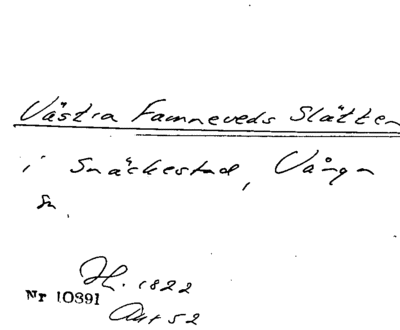 Västra Famneveds Slätten
i Snäckestad, Vånga
Sn.
H. 1822
Nr 10891
Akt 52